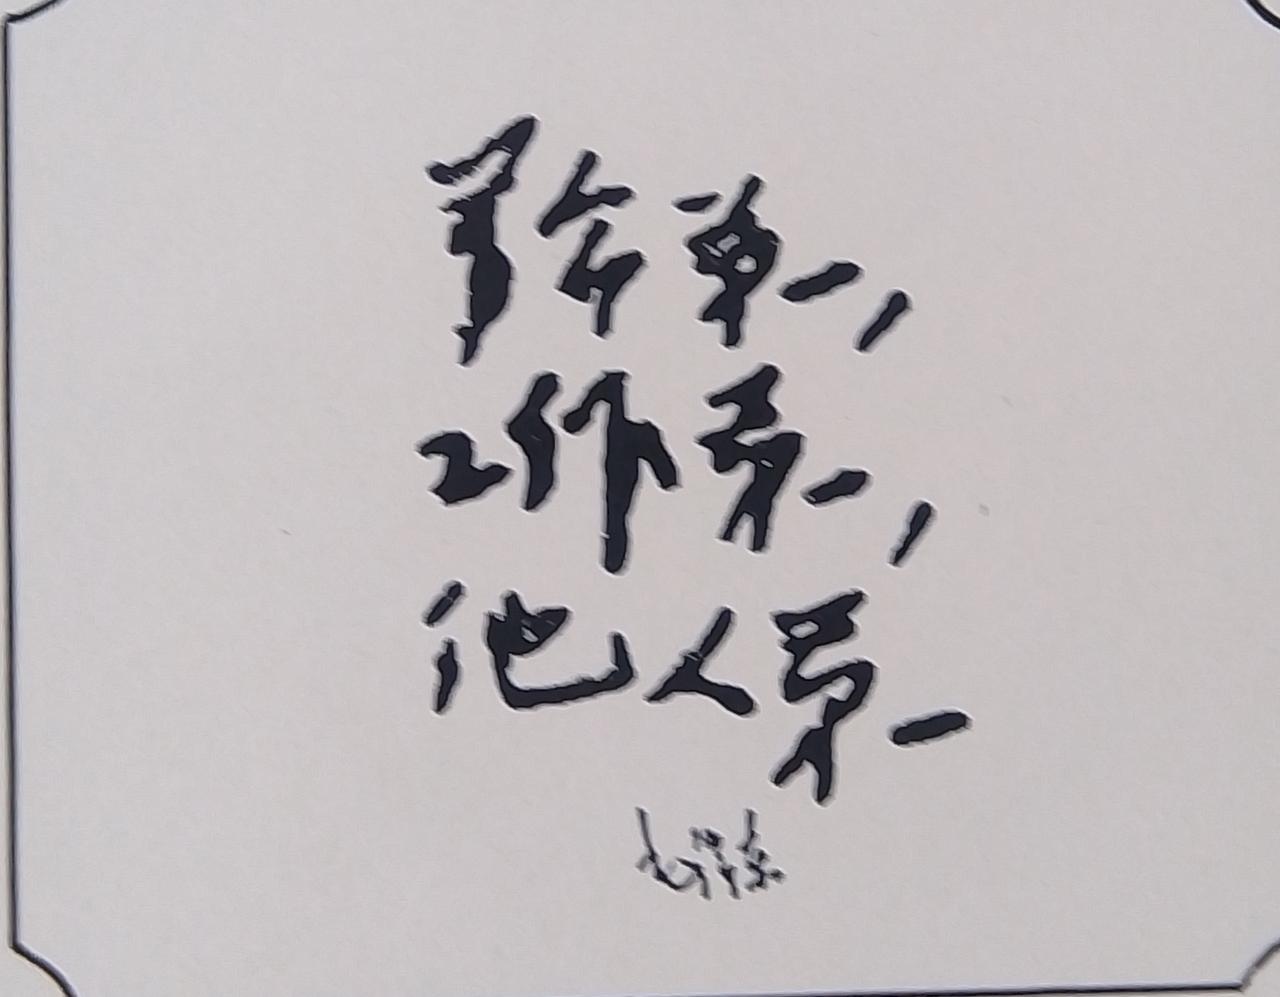 革命第一,
工作第一,
他人第一
毛泽东